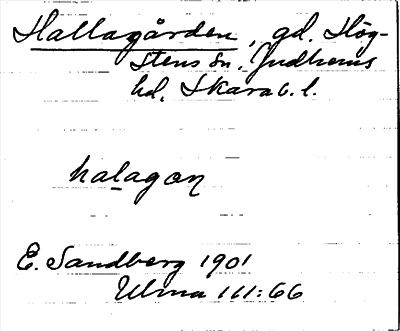 Hallagården, gd. Hög-
stens sn. Gudhems
hd. Skara b. l.
halagon
E. Sandberg 1901
Ulma 111:66